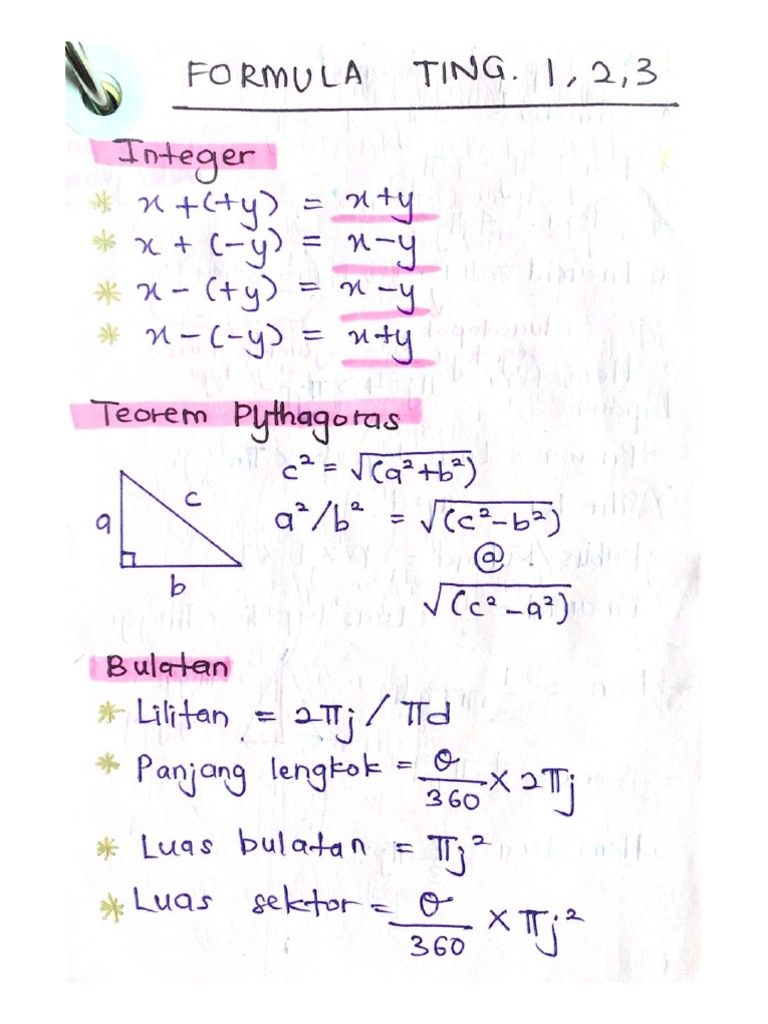 FORMULA TING. 1, 2, 3
Integer
* x + (+y) = x+y
* x + (-y) = x-y
* x - (+y) = x-y
* x - (-y) = x+y
Teorem Pythagoras
c² = √(a²+b²)
a c
a²/b² = √(c²-b²)
@
b
√(c²-a²)
Bulatan
* Lilitan = 2πj / πd
* Panjang lengkok = θ/360 × 2πj
* Luas bulatan = πj²
* Luas sektor = θ/360 × πj²